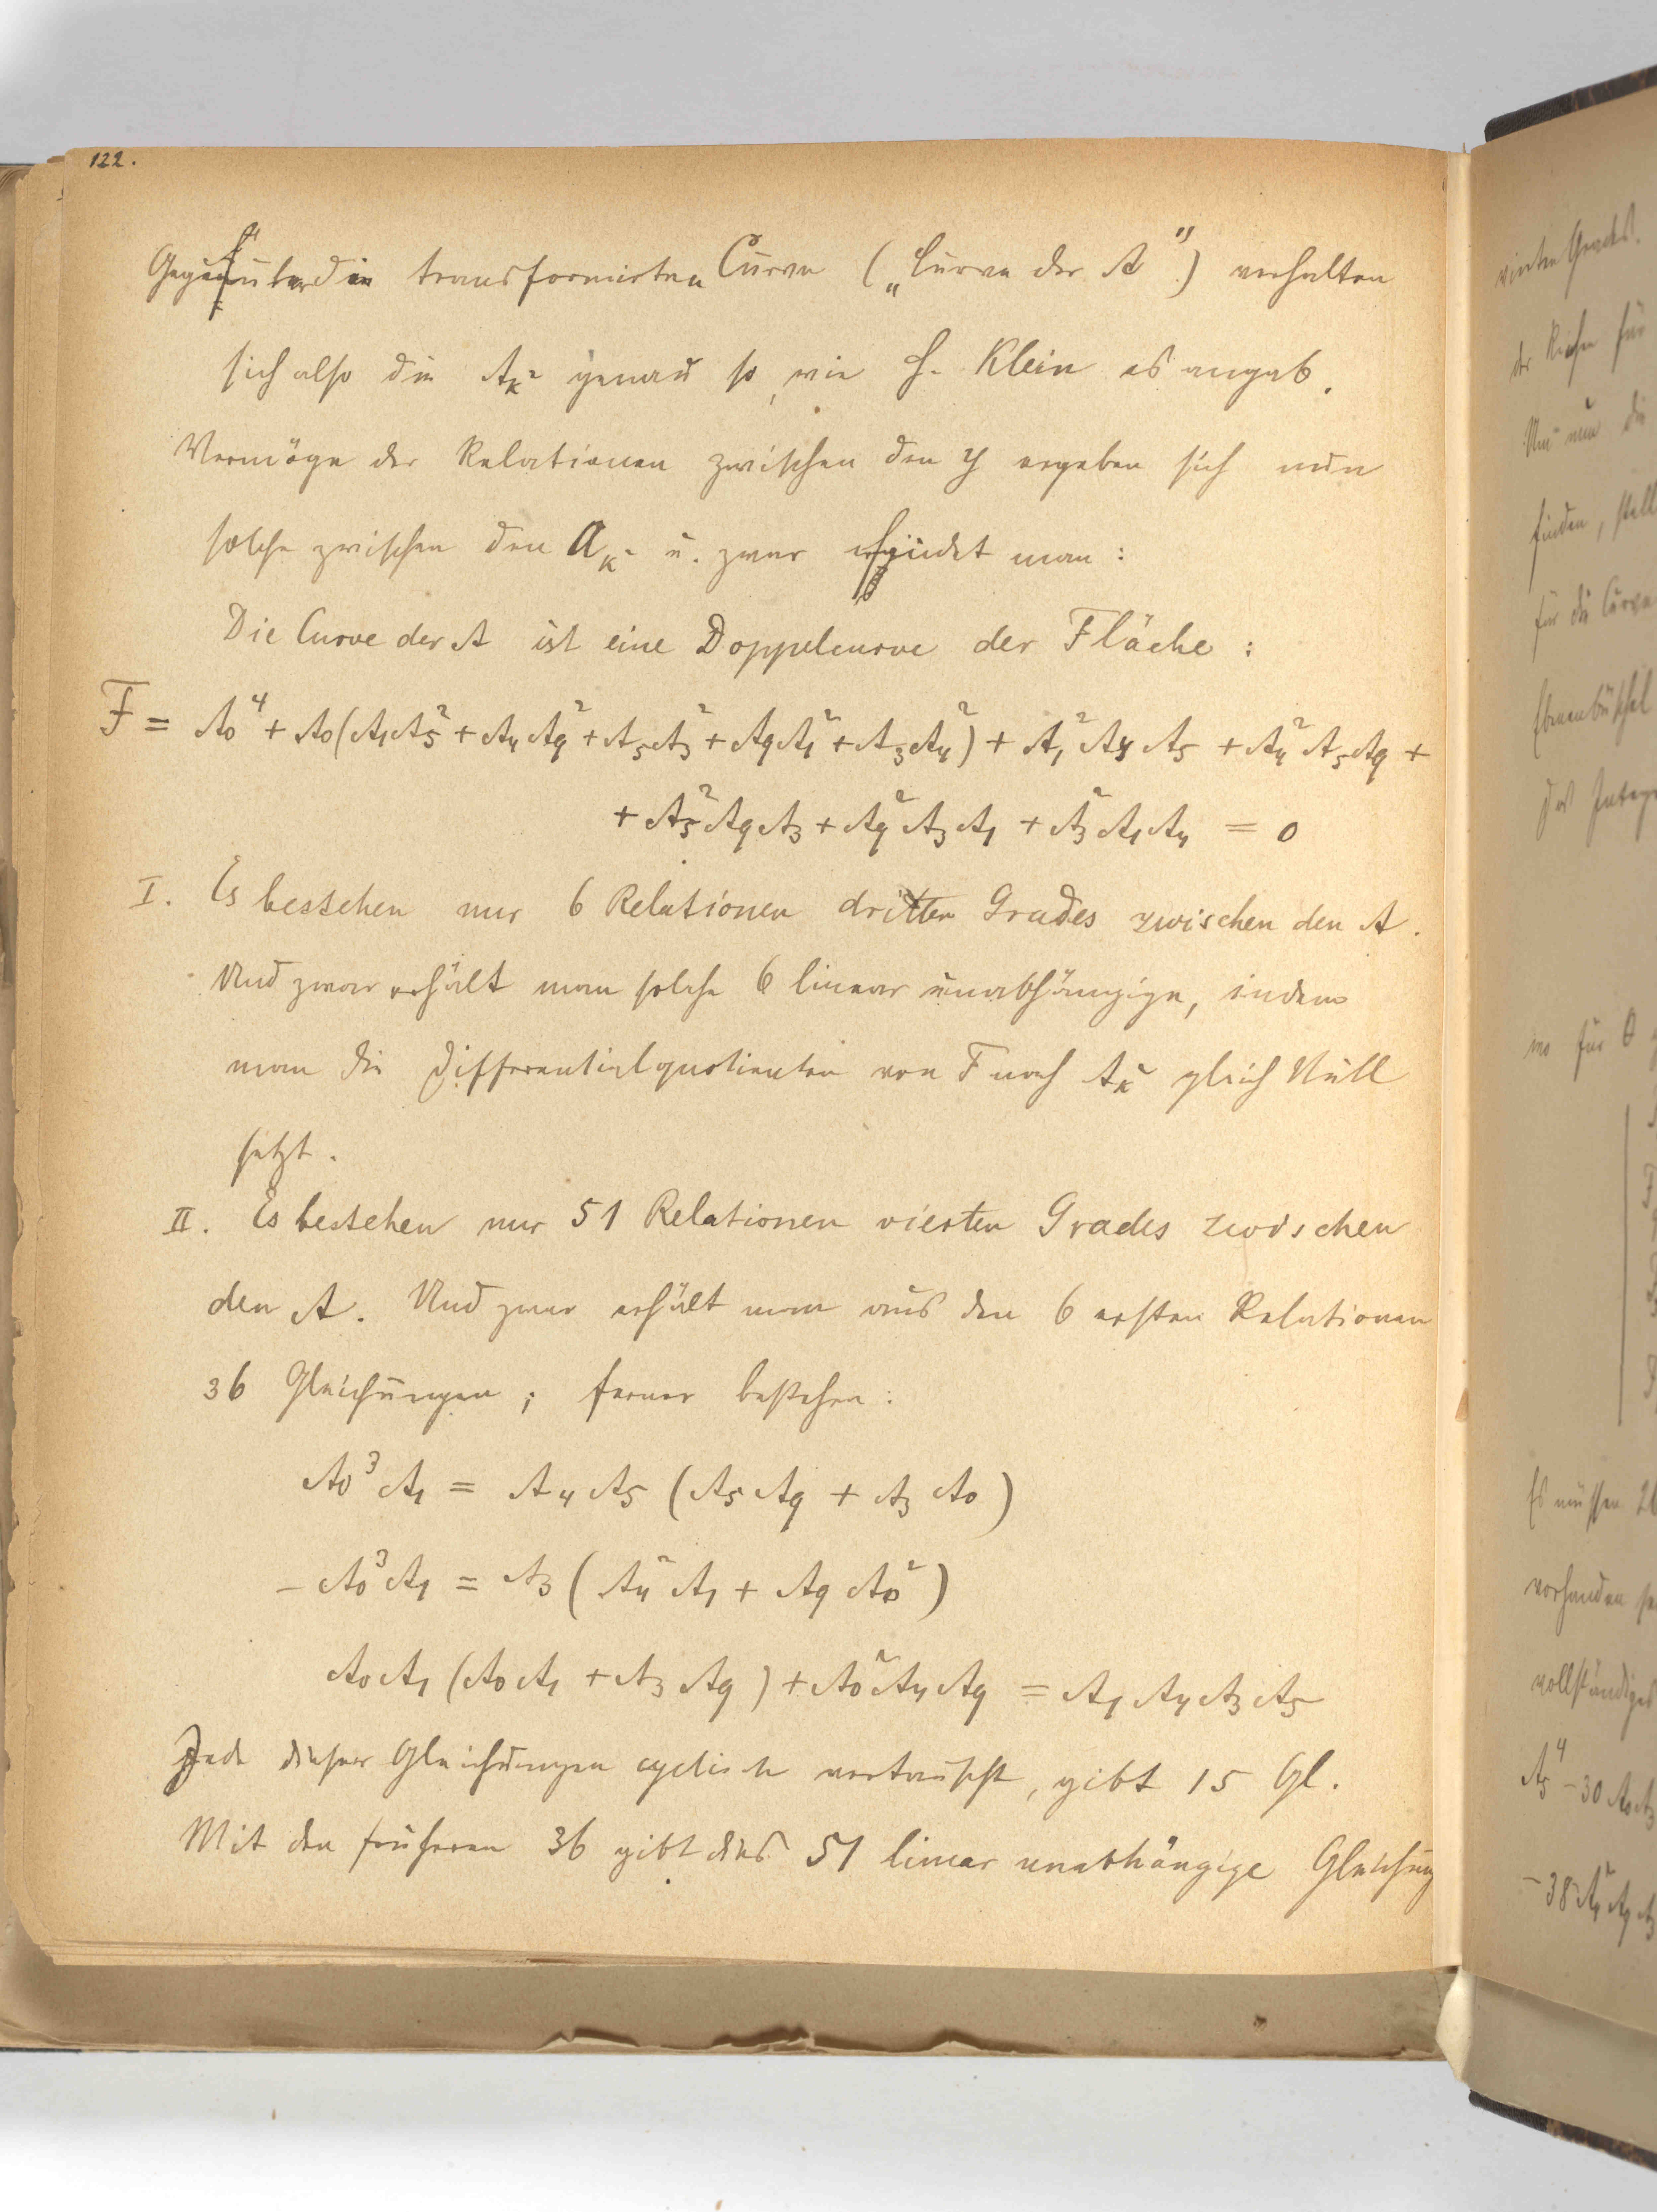 122.
Gegenüber der transformirten Curve („Curve der A") verhalten
sich also die A_κ² genau so, wie H. Klein es angab.
Vermöge der Relationen zwischen den y ergeben sich nun
solche zwischen den A_κ² u. zwar findet man:
Die Curve der A ist eine Doppelcurve der Fläche:
F = A₀⁴ + A₀(A₁A₅² + A₄A₉² + A₅A₃² + A₉A₁² + A₃A₄²) + A₁²A₄A₅ + A₄²A₅A₉ +
+ A₅²A₉A₃ + A₉²A₃A₁ + A₃²A₁A₄ = 0
I. Es bestehen nur 6 Relationen dritten Grades zwischen den A.
Und zwar erhält man solche 6 linear unabhängige, indem
man die Differentialquotienten von F nach A_κ² gleich Null
setzt.
II. Es bestehen nur 51 Relationen vierten Grades zwischen
den A. Und zwar erhält man aus den 6 ersten Relationen
36 Gleichungen; ferner bestehen:
A₀³A₁ = A₄A₅(A₅A₉ + A₃A₀)
– A₀³A₁ = A₃(A₄²A₁ + A₉A₀²)
A₀A₁(A₀A₁ + A₃A₉) + A₀²A₄A₉ = A₁A₄A₃A₅
Jede dieser Gleichungen cyclisch vertauscht, gibt 15 Gl.
Mit den früheren 36 gibt dies 51 linear unabhängige Gleichung
vierten Grades.
der Reihe für
Um nun die
finden, stell
für die Curve
Ebenenbüschel
das Integr
wo für θ
Es müssen 2
vorhanden se
vollständiges
A₅⁴ – 30 A₀A₃
– 38 A₁²A₉A₃